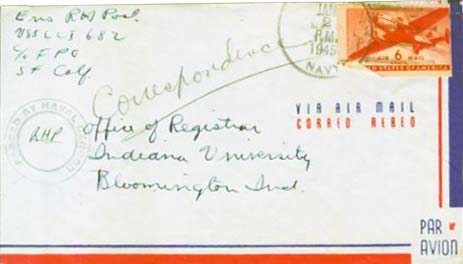 Ens RHP
USS LCS 682
c/o F P O
SF Calf.
Correspondence
JAN
2
P.M.
1945
NAVY
6
AIR MAIL
UNITED STATES OF AMERICA
VIA AIR MAIL
CORREO AEREO
PASSED BY NAVAL CENSOR
RHP
Office of Registrar
Indiana University
Bloomington Ind.
PAR
AVION